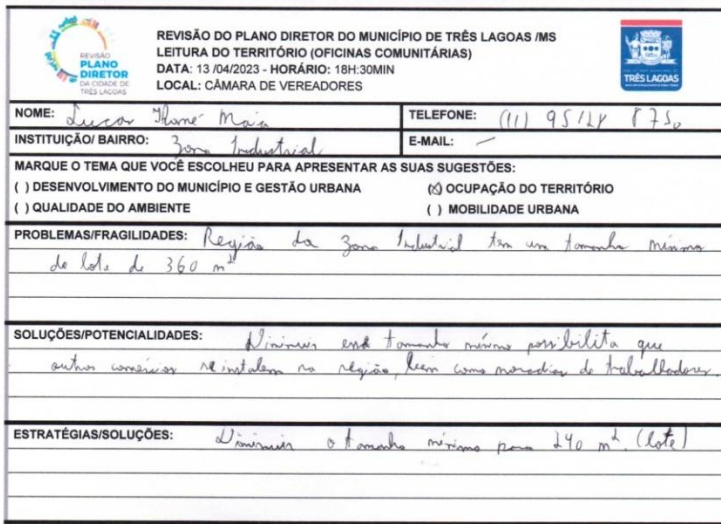 REVISÃO
PLANO
DIRETOR
DA CIDADE DE
TRÊS LAGOAS
REVISÃO DO PLANO DIRETOR DO MUNICÍPIO DE TRÊS LAGOAS /MS
LEITURA DO TERRITÓRIO (OFICINAS COMUNITÁRIAS)
DATA: 13 /04/2023 - HORÁRIO: 18H:30MIN
LOCAL: CÂMARA DE VEREADORES
TRÊS LAGOAS
NOME: Lucas Maia
TELEFONE: (11) 95128 8750
INSTITUIÇÃO/ BAIRRO: Zona Industrial
E-MAIL: —
MARQUE O TEMA QUE VOCÊ ESCOLHEU PARA APRESENTAR AS SUAS SUGESTÕES:
( ) DESENVOLVIMENTO DO MUNICÍPIO E GESTÃO URBANA (X) OCUPAÇÃO DO TERRITÓRIO
( ) QUALIDADE DO AMBIENTE ( ) MOBILIDADE URBANA
PROBLEMAS/FRAGILIDADES: Região da Zona Industrial tem um tamanho mínimo
de lote de 360 m²
SOLUÇÕES/POTENCIALIDADES: Diminuir esse tamanho mínimo possibilita que
outros comércios se instalem na região, bem como moradias de trabalhadores.
ESTRATÉGIAS/SOLUÇÕES: Diminuir o tamanho mínimo para 240 m². (lote)